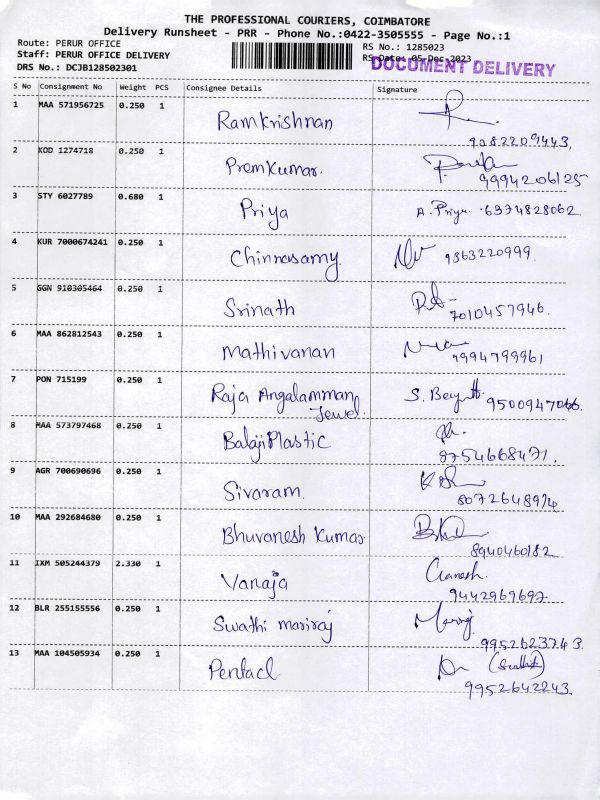 THE PROFESSIONAL COURIERS, COIMBATORE
Delivery Runsheet - PRR - Phone No.:0422-3505555 - Page No.:1
Route: PERUR OFFICE
RS No.: 1285023
Staff: PERUR OFFICE DELIVERY
RS Date: 05-Dec-2023
DOCUMENT DELIVERY
DRS No.: DCJB128502301
S No Consignment No Weight PCS Consignee Details Signature
1 MAA 571956725 0.250 1 Ramkrishnan
9082209443.
2 KOD 1274718 0.250 1 PremKumar.
9994206125
3 STY 6027789 0.680 1 Priya A. Priya 6374828062
4 KUR 7000674241 0.250 1 Chinnasamy 9363220999.
5 GGN 910305464 0.250 1 Srinath
7010457946.
6 MAA 862812543 0.250 1 Mathivanan
9994799961
7 PON 715199 0.250 1 Raja Angalamman S. 9500947066.
Jewel.
8 MAA 573797468 0.250 1 Balaji Plastic
8754668471.
9 AGR 700690696 0.250 1 Sivaram
8072648974
10 MAA 292684680 0.250 1 Bhuvanesh Kumar
8940460182
11 IXM 505244379 2.330 1 Vanaja Ganesh.
9442969697
12 BLR 255155556 0.250 1 Swathi mariraj
9952623743.
13 MAA 104505934 0.250 1 Pentacl
9952642243.